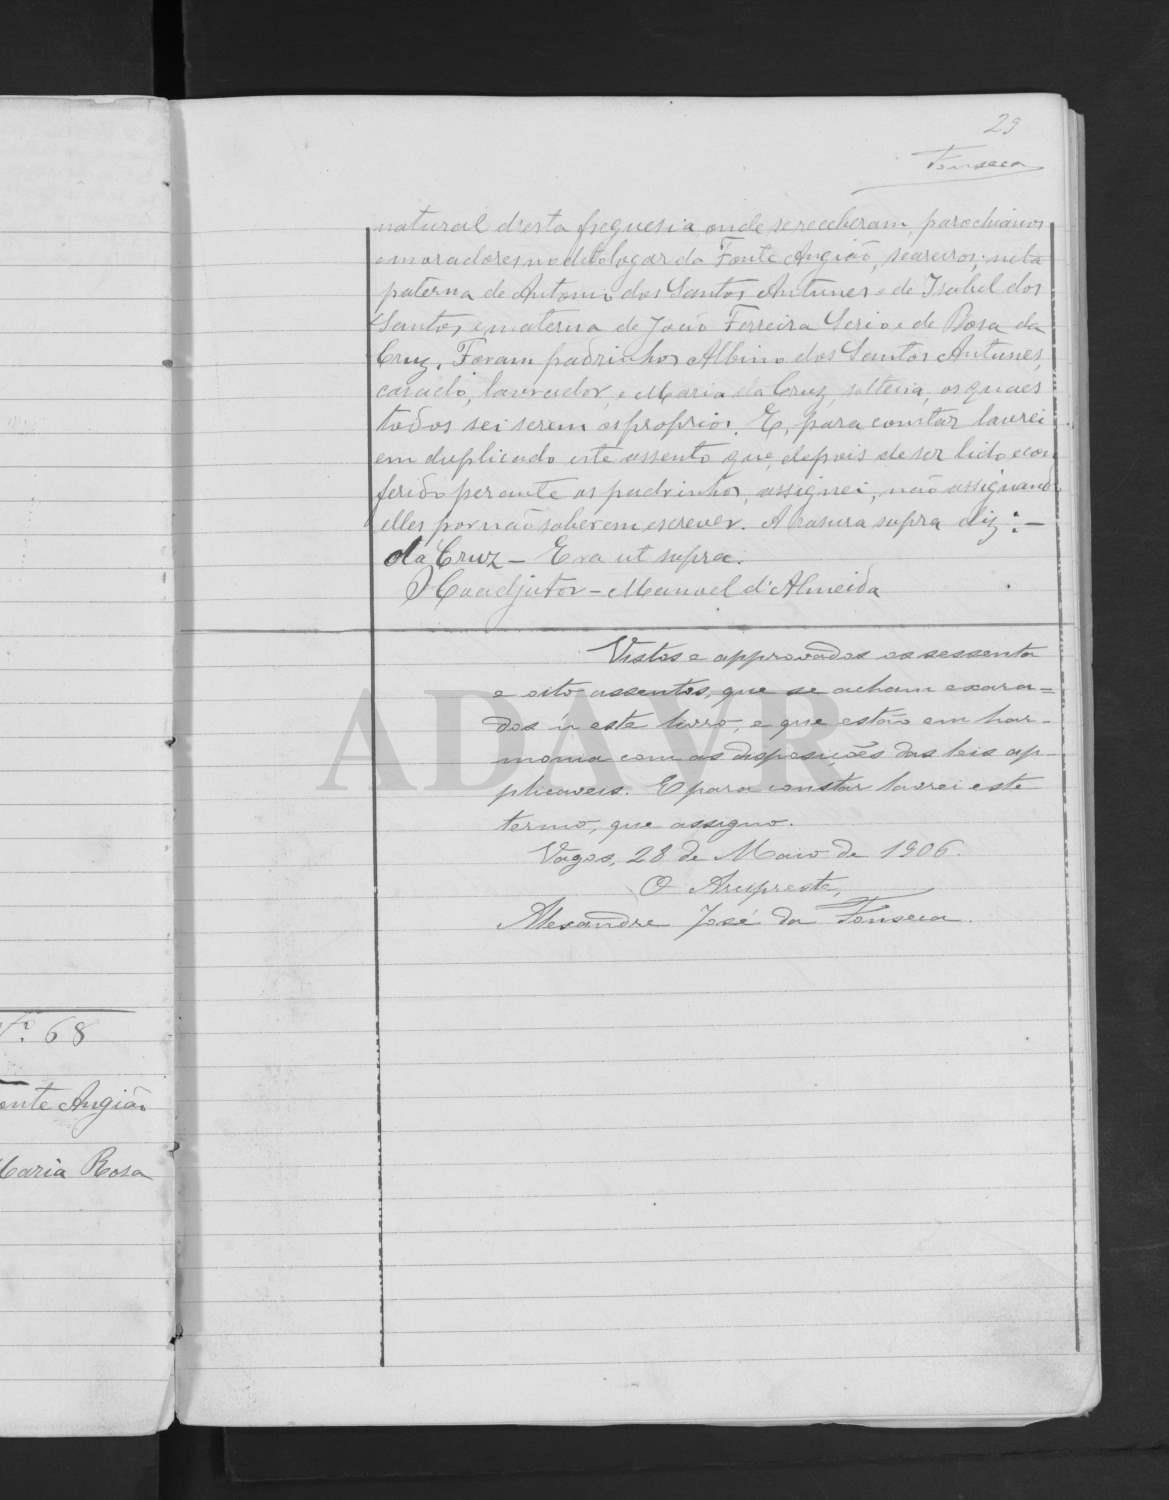 29
Fonseca
natural d'esta freguesia onde se receberam, parochianos
e moradores no dito logar da Fonte Angião, seareiros; neta
paterna de Antonio dos Santos Antunes e de Isabel dos
Santos e materna de João Ferreira Serio e de Rosa da
Cruz. Foram padrinhos Albino dos Santos Antunes,
casado, lavrador, e Maria da Cruz, solteira, os quaes
todos sei serem os proprios. E, para constar lavrei
em duplicado este assento que, depois de ser lido e con
ferido perante os padrinhos, assignei, não assignando
elles por não saberem escrever. A rasura supra diz: -
da Cruz - Era ut supra.
O Coadjutor - Manoel d'Almeida
Vistos e approvados os sessenta
e oito assentos, que se acham exara=
dos n'este livro, e que estão em har-
monia com as disposições das leis ap-
plicaveis. E para constar lavrei este
termo, que assigno.
Vagos, 28 de Maio de 1906.
O Arcypreste,
Alexandre José da Fonseca.
Nº. 68
onte Angião
Maria Rosa
ADAVR